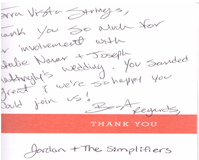 rra Vista Strings,
ank you so much for
r involvement with
talie Nanar + Joseph
wedding. You sounded
great! We're so happy you
ould join us!
Best Regards,
THANK YOU
Jordan + The Simplifiers